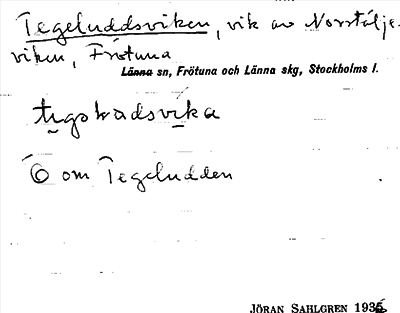 Tegeluddsviken, vik av Norrtälje-
viken, Frötuna
Länna sn, Frötuna och Länna skg, Stockholms l.
Ö om Tegeludden
JÖRAN SAHLGREN 1935